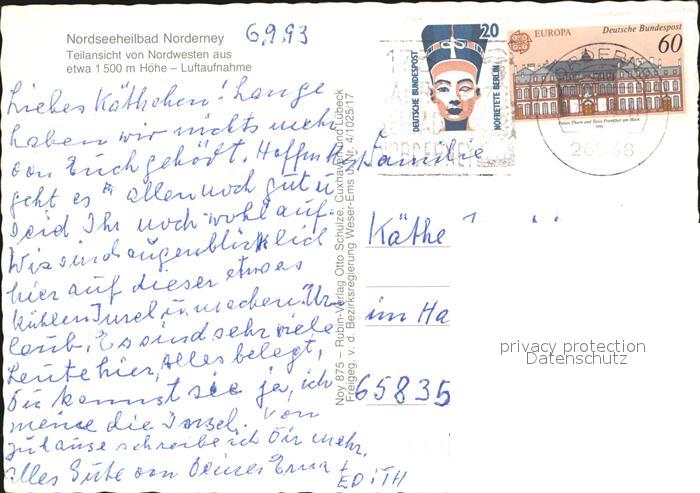 Nordseeheilbad Norderney
Teilansicht von Nordwesten aus
etwa 1500 m Höhe – Luftaufnahme
6.9.93
Liebes Käthchen! Lange
haben wir nichts mehr
von Euch gehört. Hoffentl.
geht es allen noch gut u
seid Ihr noch wohl auf.
Wir sind augenblicklich
hier auf dieser etwas
kühlen Insel u. machen Ur-
laub. Es sind sehr viele
Leute hier, alles belegt,
Du kennst sie ja, ich
meine die Insel. Von
zuhause schreibe ich Dir mehr.
Alles Gute von Deiner Erna +
EDITH
Noy 875 – Rubin-Verlag Otto Schulze, Cuxhaven und Lübeck
Freigeg. v. d. Bezirksregierung Weser-Ems u. Nr. 4/1025/17
20
DEUTSCHE BUNDESPOST
NOFRETETE BERLIN
EUROPA
Deutsche Bundespost
60
Palais Thurn und Taxis Frankfurt am Main
1990
NORDERNEY
26548
Familie
Käthe
im Ha
65835
privacy protection
Datenschutz